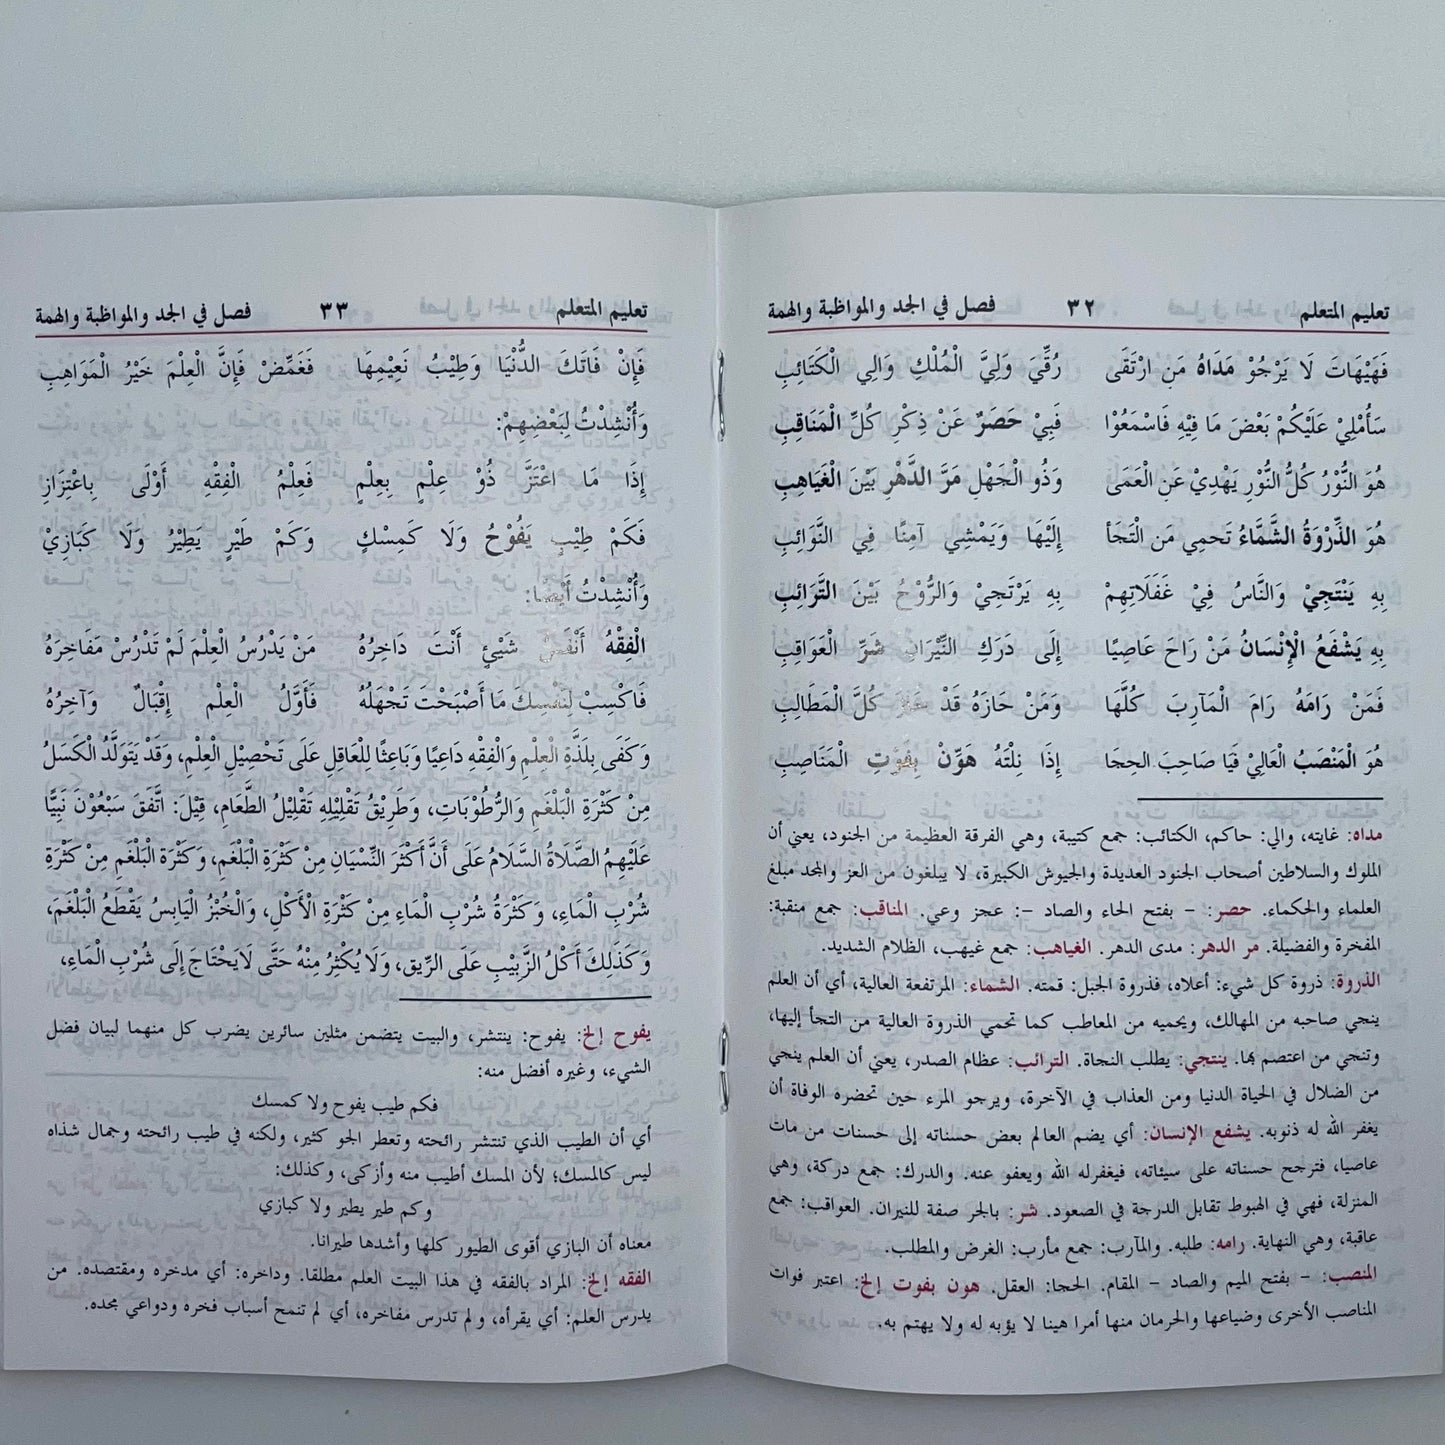 تعليم المتعلم ٣٢ فصل في الجد والمواظبة والهمة
فَهَيْهَاتَ لَا يَرْجُوْ مَدَاهُ مَنِ ارْتَقَى رُقِّيَ وَلِيَّ الْمُلْكِ وَالِي الْكَتَائِبِ
سَأُمْلِيْ عَلَيْكُمْ بَعْضَ مَا فِيْهِ فَاسْمَعُوْا فَبِيْ حَصَرٌ عَنْ ذِكْرِ كُلِّ الْمَنَاقِبِ
هُوَ النُّوْرُ كُلُّ النُّوْرِ يَهْدِيْ عَنِ الْعَمَى وَذُو الْجَهْلِ مَرَّ الدَّهْرِ بَيْنَ الْغَيَاهِبِ
هُوَ الذِّرْوَةُ الشَّمَّاءُ تَحمِي مَن الْتَجَأ إِلَيْهَا وَيَمْشِي آمِنًا فِي النَّوَائِبِ
بِهِ يَنْتَجِيْ وَالنَّاسُ فِيْ غَفَلَاتِهِمْ بِهِ يَرْتَجِيْ وَالرُّوْحُ بَيْنَ التَّرَائِبِ
بِهِ يَشْفَعُ الْإِنْسَانُ مَنْ رَاحَ عَاصِيًا إِلَى دَرَكِ النِّيْرَانِ شَرِّ الْعَوَاقِبِ
فَمَنْ رَامَهُ رَامَ الْمَآرِبَ كُلَّهَا وَمَنْ حَازَهُ قَدْ كُلَّ الْمَطَالِبِ
هُوَ الْمَنْصَبُ الْعَالِيْ فَيَا صَاحِبَ الحِجَا إِذَا نِلْتَهُ هَوِّنْ بِفَوْتِ الْمَنَاصِبِ
مداه: غايته، والي: حاكم، الكتائب: جمع كتيبة، وهي الفرقة العظيمة من الجنود، يعني أن
الملوك والسلاطين أصحاب الجنود العديدة والجيوش الكبيرة، لا يبلغون من العز والمجد مبلغ
العلماء والحكماء. حصر: – بفتح الحاء والصاد –: عجز وعي. المناقب: جمع منقبة:
المفخرة والفضيلة. مر الدهر: مدى الدهر. الغياهب: جمع غيهب، الظلام الشديد.
الذروة: ذروة كل شيء: أعلاه، فذروة الجبل: قمته. الشماء: المرتفعة العالية، أي أن العلم
ينجي صاحبه من المهالك، ويحميه من المعاطب كما تحمي الذروة العالية من التجأ إليها،
وتنجي من اعتصم بها. ينتجي: يطلب النجاة. الترائب: عظام الصدر، يعني أن العلم ينجي
من الضلال في الحياة الدنيا ومن العذاب في الآخرة، ويرجو المرء حين تحضره الوفاة أن
يغفر الله له ذنوبه. يشفع الإنسان: أي يضم العالم بعض حسناته إلى حسنات من مات
عاصيا، فترجح حسناته على سيئاته، فيغفرله الله ويعفو عنه. والدرك: جمع دركة، وهي
المنزلة، فهي في الهبوط تقابل الدرجة في الصعود. شر: بالجر صفة للنيران. العواقب: جمع
عاقبة، وهي النهاية. رامه: طلبه. والمآرب: جمع مأرب: الغرض والمطلب.
المنصب: – بفتح الميم والصاد – المقام. الحجا: العقل. هون بفوت إلخ: اعتبر فوات
المناصب الأخرى وضياعها والحرمان منها أمرا هينا لا يؤبه له ولا يهتم به.
تعليم المتعلم ٣٣ فصل في الجد والمواظبة والهمة
فَإِنْ فَاتَكَ الدُّنْيَا وَطِيْبُ نَعِيْمِهَا فَغَمِّضْ فَإِنَّ الْعِلْمَ خَيْرُ الْمَوَاهِبِ
وَأُنْشِدْتُ لِبَعْضِهِمْ:
إِذَا مَا اعْتَزَّ ذُوْ عِلْمٍ بِعِلْمٍ فَعِلْمُ الْفِقْهِ أَوْلَى بِاعْتِزَازِ
فَكَمْ طِيْبٍ يَفُوْحُ وَلَا كَمِسْكٍ وَكَمْ طَيْرٍ يَطِيْرُ وَلَا كَبَازِيْ
وَأُنْشِدْتُ أَيْضًا:
الْفِقْهُ أَنْفَسُ شَيْئٍ أَنْتَ دَاخِرُهُ مَنْ يَدْرُسُ الْعِلْمَ لَمْ تَدْرُسْ مَفَاخِرَهُ
فَاكْسِبْ لِنَفْسِكَ مَا أَصْبَحْتَ تَجْهَلُهُ فَأَوَّلُ الْعِلْمِ إِقْبَالٌ وَآخِرُهُ
وَكَفَى بِلَذَّةِ الْعِلْمِ وَالْفِقْهِ دَاعِيًا وَبَاعِثًا لِلْعَاقِلِ عَلَى تَحْصِيْلِ الْعِلْمِ، وَقَدْ يَتَوَلَّدُ الْكَسَلُ
مِنْ كَثْرَةِ الْبَلْغَمِ وَالرُّطُوْبَاتِ، وَطَرِيْقُ تَقْلِيْلِهِ تَقْلِيْلُ الطَّعَامِ، قِيْلَ: اتَّفَقَ سَبْعُوْنَ نَبِيًّا
عَلَيْهِمُ الصَّلَاةُ السَّلَامُ عَلَى أَنَّ أَكْثَرَ النِّسْيَانِ مِنْ كَثْرَةِ الْبَلْغَمِ، وَكَثْرَةَ الْبَلْغَمِ مِنْ كَثْرَةِ
شُرْبِ الْمَاءِ، وَكَثْرَةُ شُرْبِ الْمَاءِ مِنْ كَثْرَةِ الْأَكْلِ، وَالْخُبْزُ الْيَابِسُ يَقْطَعُ الْبَلْغَمَ،
وَكَذَلِكَ أَكْلُ الزَّبِيْبِ عَلَى الرِّيقِ، وَلَا يُكْثِرُ مِنْهُ حَتَّى لَايَحْتَاجَ إِلَى شُرْبِ الْمَاءِ،
يفوح إلخ: يفوح: ينتشر، والبيت يتضمن مثلين سائرين يضرب كل منهما لبيان فضل
الشيء، وغيره أفضل منه:
فكم طيب يفوح ولا كمسك
أي أن الطيب الذي تنتشر رائحته وتعطر الجو كثير، ولكنه في طيب رائحته وجمال شذاه
ليس كالمسك؛ لأن المسك أطيب منه وأزكى، وكذلك:
وكم طير يطير ولا كبازي
معناه أن البازي أقوى الطيور كلها وأشدها طيرانا.
الفقه إلخ: المراد بالفقه في هذا البيت العلم مطلقا. وداخره: أي مدخره ومقتصده. من
يدرس العلم: أي يقرأه، ولم تدرس مفاخره، أي لم تنمح أسباب فخره ودواعي مجده.